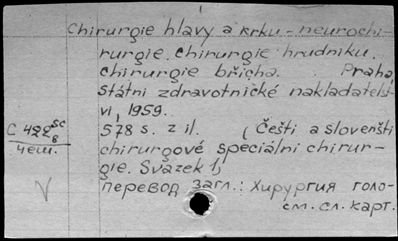 Chirurgie hlavy a krku - neurochi-
rurgie. Chirurgie hrudníku.
Chirurgie břicha. Praha,
Státní zdravotnické nakladatelst-
vi, 1959.
С 422 sc/8
чеш.
578 s. z il. (Čeští a slovenští
chirurgové speciální chirur-
gie. Svazek 1)
Перевод загл.: Хирургия голо-
см. сл. карт.